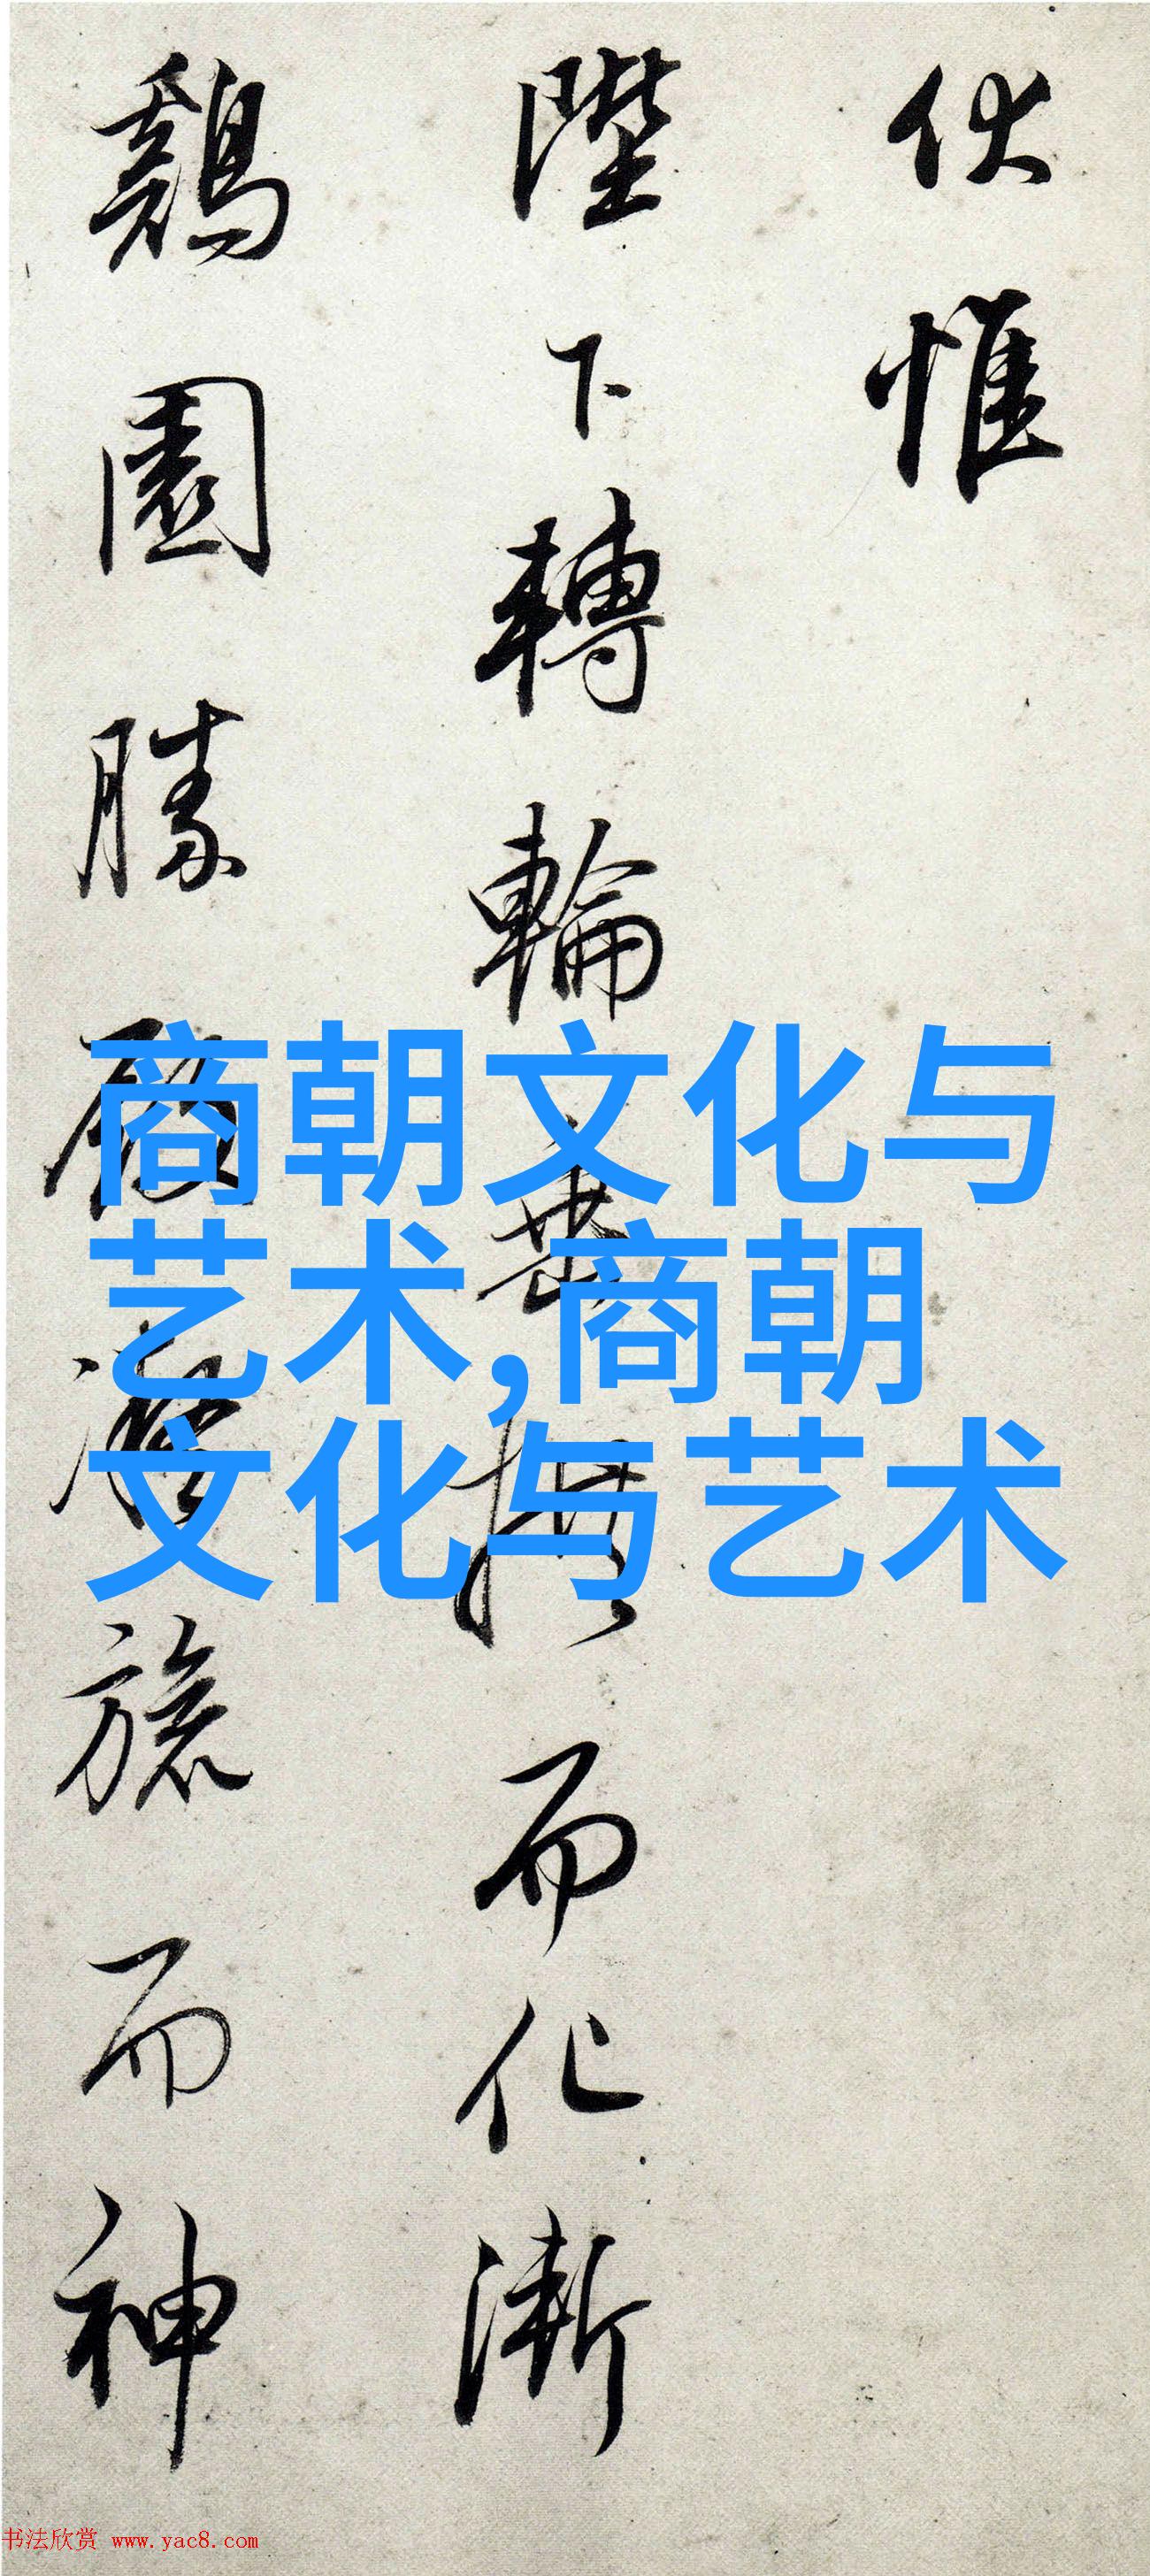 伏惟
陛下轉輪垂拱而化漸
鷄園勝殿凝旒而神
商朝文化与
艺术,商朝
文化与艺术
书法欣赏 www.yac8.com